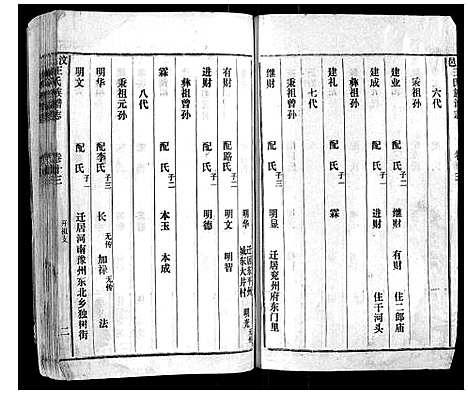 六代
秉祖孙
建业 配 氏 子二 继财 有财 住二郎庙
建成 配 氏 子一 进财 住干河头
建礼 配 氏 子一 霖
七代
秉祖曾孙
继财 配 氏 子三 明显 迁居兖州府东门里
明华 迁居东平州城东大井村 明光
有财 配路氏 子二 明文 明智
进财 配 氏 子一 明德
彝祖曾孙
霖 配 氏 子二 本玉 本成
八代
秉祖元孙
明华 配李氏 子三 长 无传 加禄 无传 法
明文 配 氏 子一 迁居河南豫州东北乡独树街
汶 王氏族谱志 卷十三 二